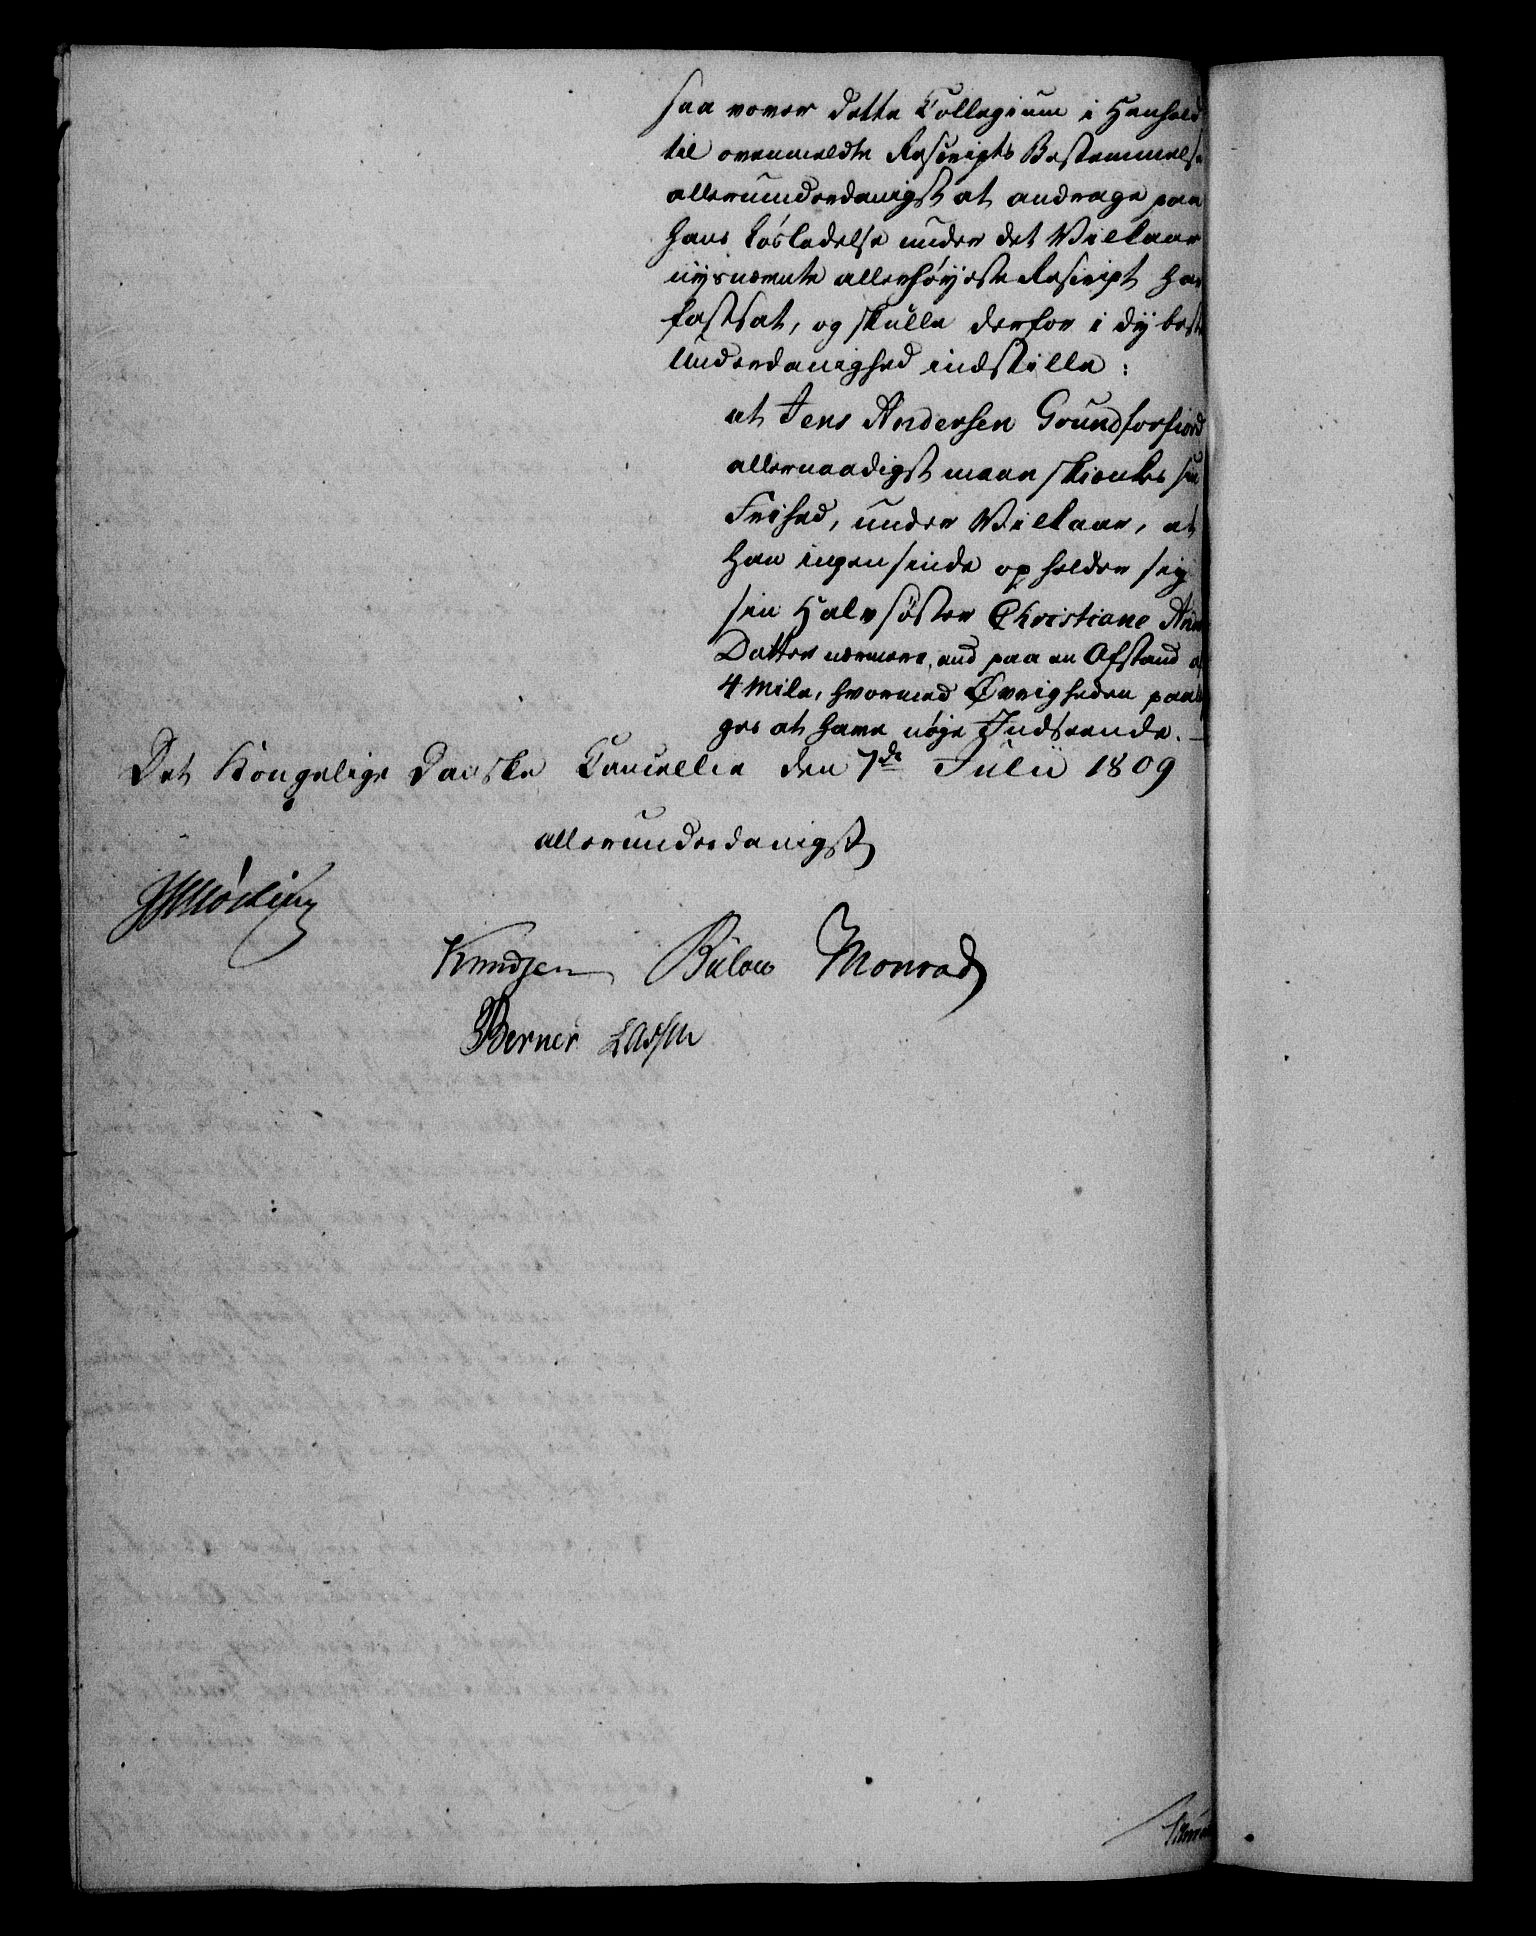 saa vover dette Collegium i Henhold
til ovenmeldte Rescripts Bestemmelse
allerunderdanigst at andrage paa
hans Løsladelse under det Vilkaar
nysnævnte allerhøyeste Rescript har
fastsat, og skulle derfor i dyb best
Underdanighed indstille:
at Jens Andersen Grundforfiord
allernaadigst maae skienkes sin
Frihed, under Vilkaar, at
han ingensinde opholder sig
sin Halvsøster Christiane Anders
Datter nærmere, end paa en Afstand af
4 Mile, hvormed Øvrigheden paalæg
ges at have nøje Indseende. —
Det Kongelige Danske Cancellie den 7de Julii 1809
allerunderdanigst
Knudsen Bülow Monrad
Berner Lassen